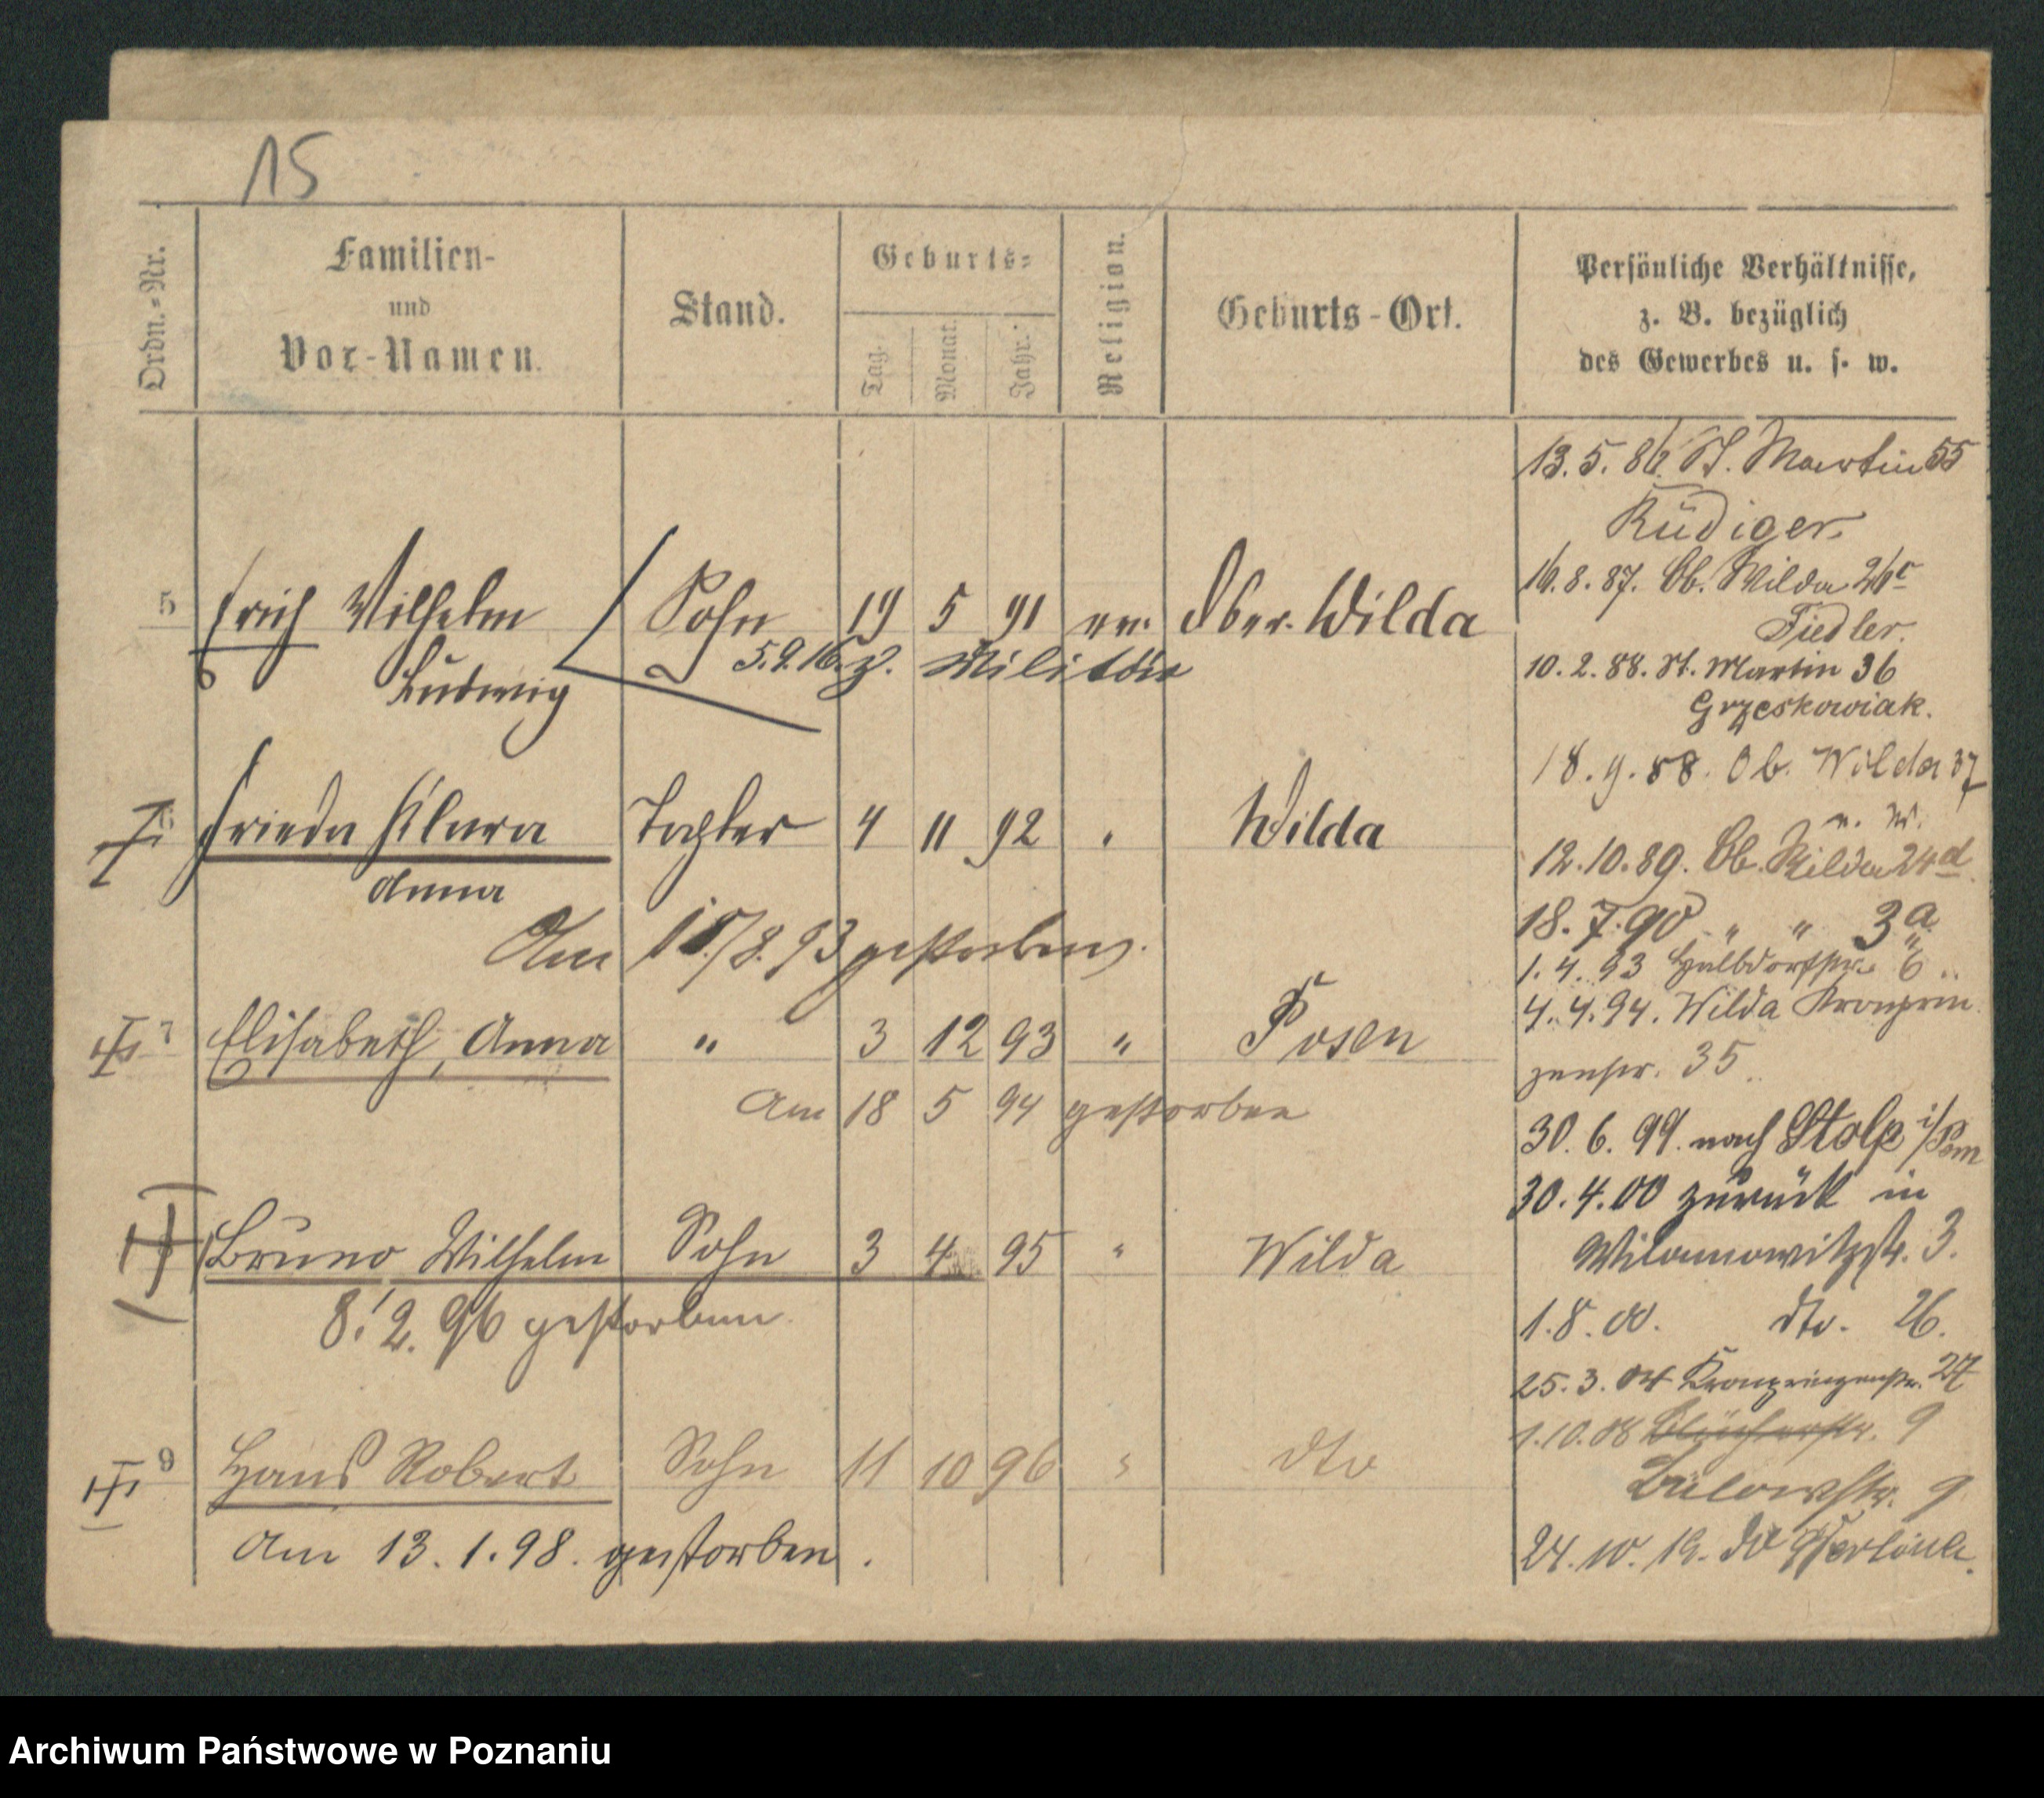 15
Ordn.=Nr.
Familien-
und
Vor-Namen.
Stand.
Geburts=
Tag.
Monat.
Jahr.
Religion.
Geburts-Ort.
Persönliche Verhältnisse,
z. B. bezüglich
des Gewerbes u. s. w.
5 Erich Wilhelm Sohn 19 5 91 ev. Ober-Wilda
Ludwig 5.9.16. z. Militär
Frieda Klara Tochter 4 11 92 " Wilda
Anna
Am 18/8.93 gestorben.
7 Elisabeth, Anna " 3 12 93 " Posen
Am 18 5 94 gestorben
Bruno Wilhelm Sohn 3 4 95 " Wilda
8. 2. 96 gestorben
9 Hans Robert Sohn 11 10 96 " dto
Am 13.1.98. gestorben.
13.5.86. St. Martin 55
Rüdiger.
16.8.87. Ob. Wilda 26c
Fiedler.
10.2.88. St. Martin 36
Grzeskowiak.
18.9.88. Ob. Wilda 37
12.10.89. Ob. Wilda 24d
18.7.90 " " 3a
1.4.93 Halbdorfstr. 6
4.4.94. Wilda Kronprin
zenstr. 35
30.6.99. nach Stolp i/Pom
30.4.00 zurück in
Wilamowitzstr. 3.
1.8.00. dto. 26.
25.3.04 Kronprinzenstr. 27
1.10.08 Blücherstr. 9
Bülowstr. 9
24.10.19.
Archiwum Państwowe w Poznaniu